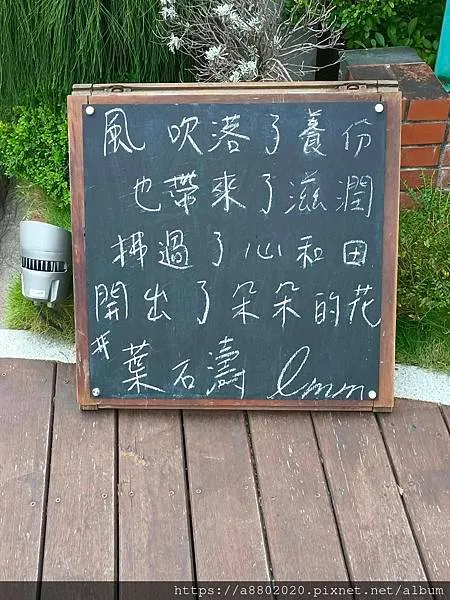 風 吹落了養份
也帶來了滋潤
拂過了心和田
開出了朵朵的花
# 葉石濤 lmm
https://a8802020.pixnet.net/album